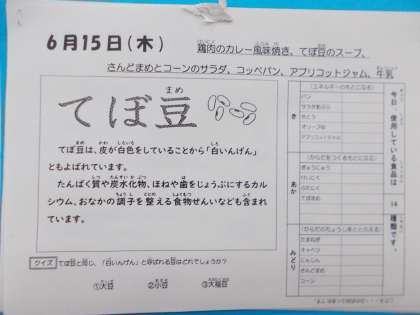 6月15日(木)
鶏肉のカレー風味焼き、てぼ豆のスープ、
さんどまめとコーンのサラダ、コッペパン、アプリコットジャム、牛乳
てぼ豆
まめ
てぼ豆は、皮が白色をしていることから「白いんげん」
ともよばれています。
たんぱく質や炭水化物、ほねや歯をじょうぶにするカル
シウム、おなかの調子を整える食物せんいなども含まれ
ています。
クイズ てぼ豆と同じ、「白いんげん」と呼ばれる豆はどれでしょうか?
①大豆 ②小豆 ③大福豆
今日使用している食品は 14 種類です。
き
(エネルギーのもとになる)
パン
サラダあぶら
さとう
オリーブ油
アプリコットジャム
あか
(からだをつくるもとになる)
ぎゅうにゅう
とりにく
てぼまめ
みどり
(からだのちょうしをととのえる)
たまねぎ
キャベツ
にんじん
さんどまめ
コーン